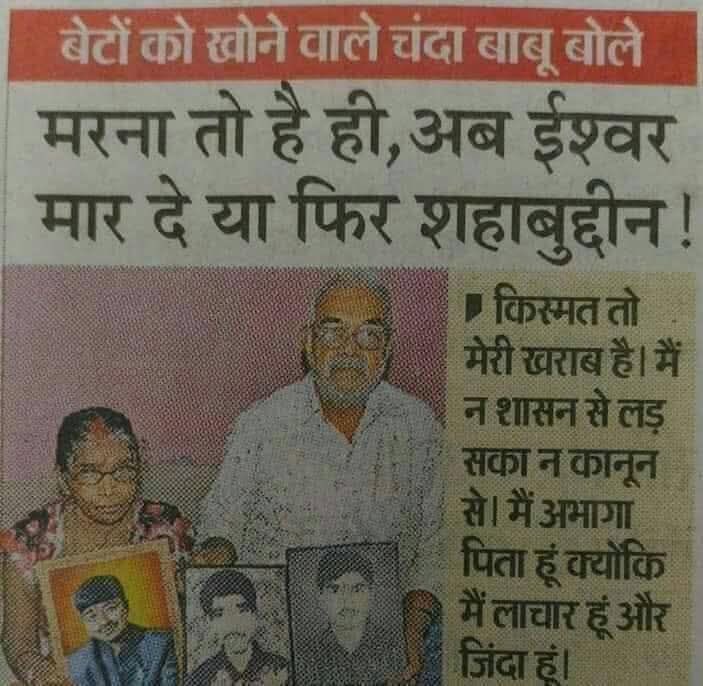 बेटों को खोने वाले चंदा बाबू बोले
मरना तो है ही, अब ईश्वर
मार दे या फिर शहाबुद्दीन !
किस्मत तो
मेरी खराब है। मैं
न शासन से लड़
सका न कानून
से। मैं अभागा
पिता हूं क्योंकि
मैं लाचार हूं और
जिंदा हूं।